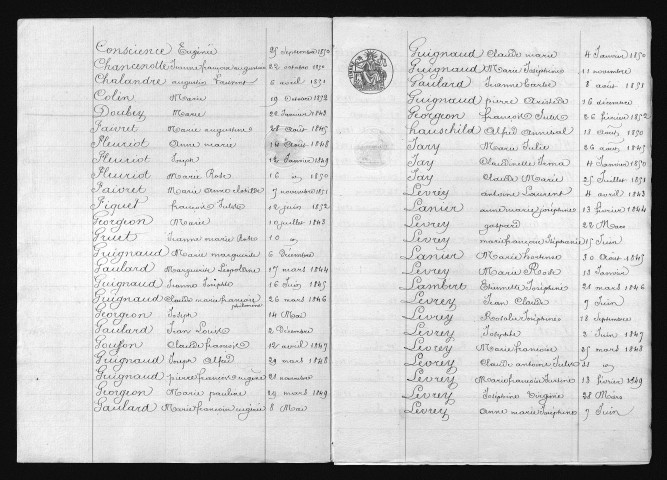 Conscience Eugénie 25 Septembre 1850
Chancenotte Jeanne françoise augustine 22 octobre 1850
Chalandre augustin Laurent 6 avril 1851
Colin Marie 19 Octobre 1852
Doubey Marie 22 Janvier 1843
Faivret Marie augustine 28 Août 1845
Fleuriot Anne marie 14 Août 1848
Fleuriot Joseph 12 Janvier 1849
Fleuriot Marie Rose 16 id 1850
Faivret Marie Anne 7 novembre 1851
Figuet françois Jules 12 juin 1852
Georgeon Marie 10 juillet 1843
Gruet Jeanne marie Rose 10 id
Guignaud Marie marguerite 6 Décembre
Gaulard Marguerite Léopoldine 17 mars 1844
Guignaud Jeanne Josèphe 16 Juin 1845
Guignaud Claude marie françois philomène 26 mars 1846
Georgeon Joseph 14 Mai
Gaulard Jean Louis 2 Décembre
Goujon Claude françois 12 avril 1847
Guignaud Joseph Alfred 29 mars 1848
Guignaud pierre françois eugène 21 novembre
Georgeon Marie pauline 29 mars 1849
Gaulard Marie françoise eugénie 8 Mai
Guignaud Claude marie 4 Janvier 1850
Guignaud Marie Joséphine 11 novembre
Gaulard Jeanne 8 août 1851
Guignaud pierre Aristide 16 décembre
Georgeon françois Jules 26 février 1852
hauschild Alfred 13 Août 1850
Jary Marie Julie 26 août 1845
Jay Claudinette Irma 4 Janvier 1850
Jay Claude Marie 25 Juillet 1851
Levrey antoine Laurent 4 avril 1843
Lanier anne marie joséphine 13 février 1844
Levrey gaspard 22 Mars
Levrey marie françoise Stéphanie 15 Juin
Lanier Marie hortense 30 Août 1845
Levrey Marie Rose 13 Janvier
Lambert Etiennette Joséphine 21 mars 1846
Levrey Jean Claude 9 Juin
Levrey Rosalie Joséphine 18 Septembre
Levrey Josèphe 2 Juin 1847
Levrey Marie françoise 25 mars 1848
Levrey Claude antoine Jules 21 id
Levrey Marie françoise 13 février 1849
Levrey Joséphine Virginie 28 Mars
Levrey Anne marie Joséphine 9 Juin